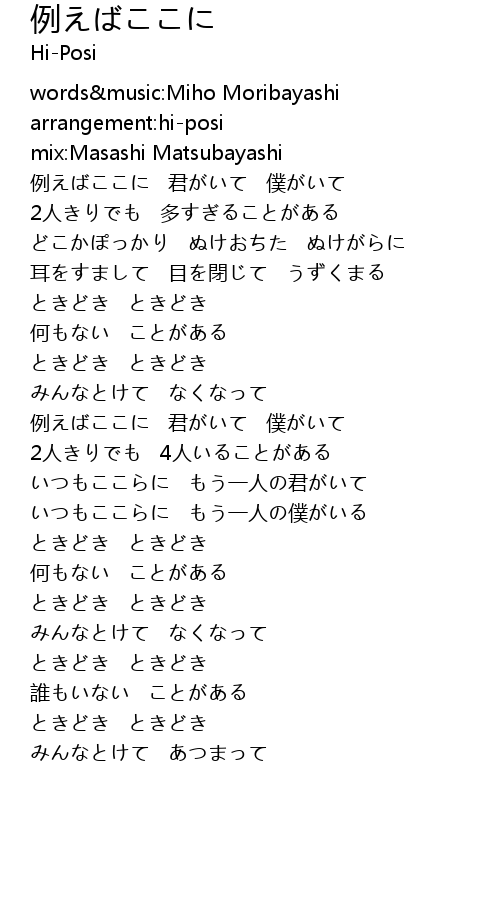 例えばここに
Hi-Posi
words&music:Miho Moribayashi
arrangement:hi-posi
mix:Masashi Matsubayashi
例えばここに　君がいて　僕がいて
2人きりでも　多すぎることがある
どこかぽっかり　ぬけおちた　ぬけがらに
耳をすまして　目を閉じて　うずくまる
ときどき　ときどき
何もない　ことがある
ときどき　ときどき
みんなとけて　なくなって
例えばここに　君がいて　僕がいて
2人きりでも　4人いることがある
いつもここらに　もう一人の君がいて
いつもここらに　もう一人の僕がいる
ときどき　ときどき
何もない　ことがある
ときどき　ときどき
みんなとけて　なくなって
ときどき　ときどき
誰もいない　ことがある
ときどき　ときどき
みんなとけて　あつまって